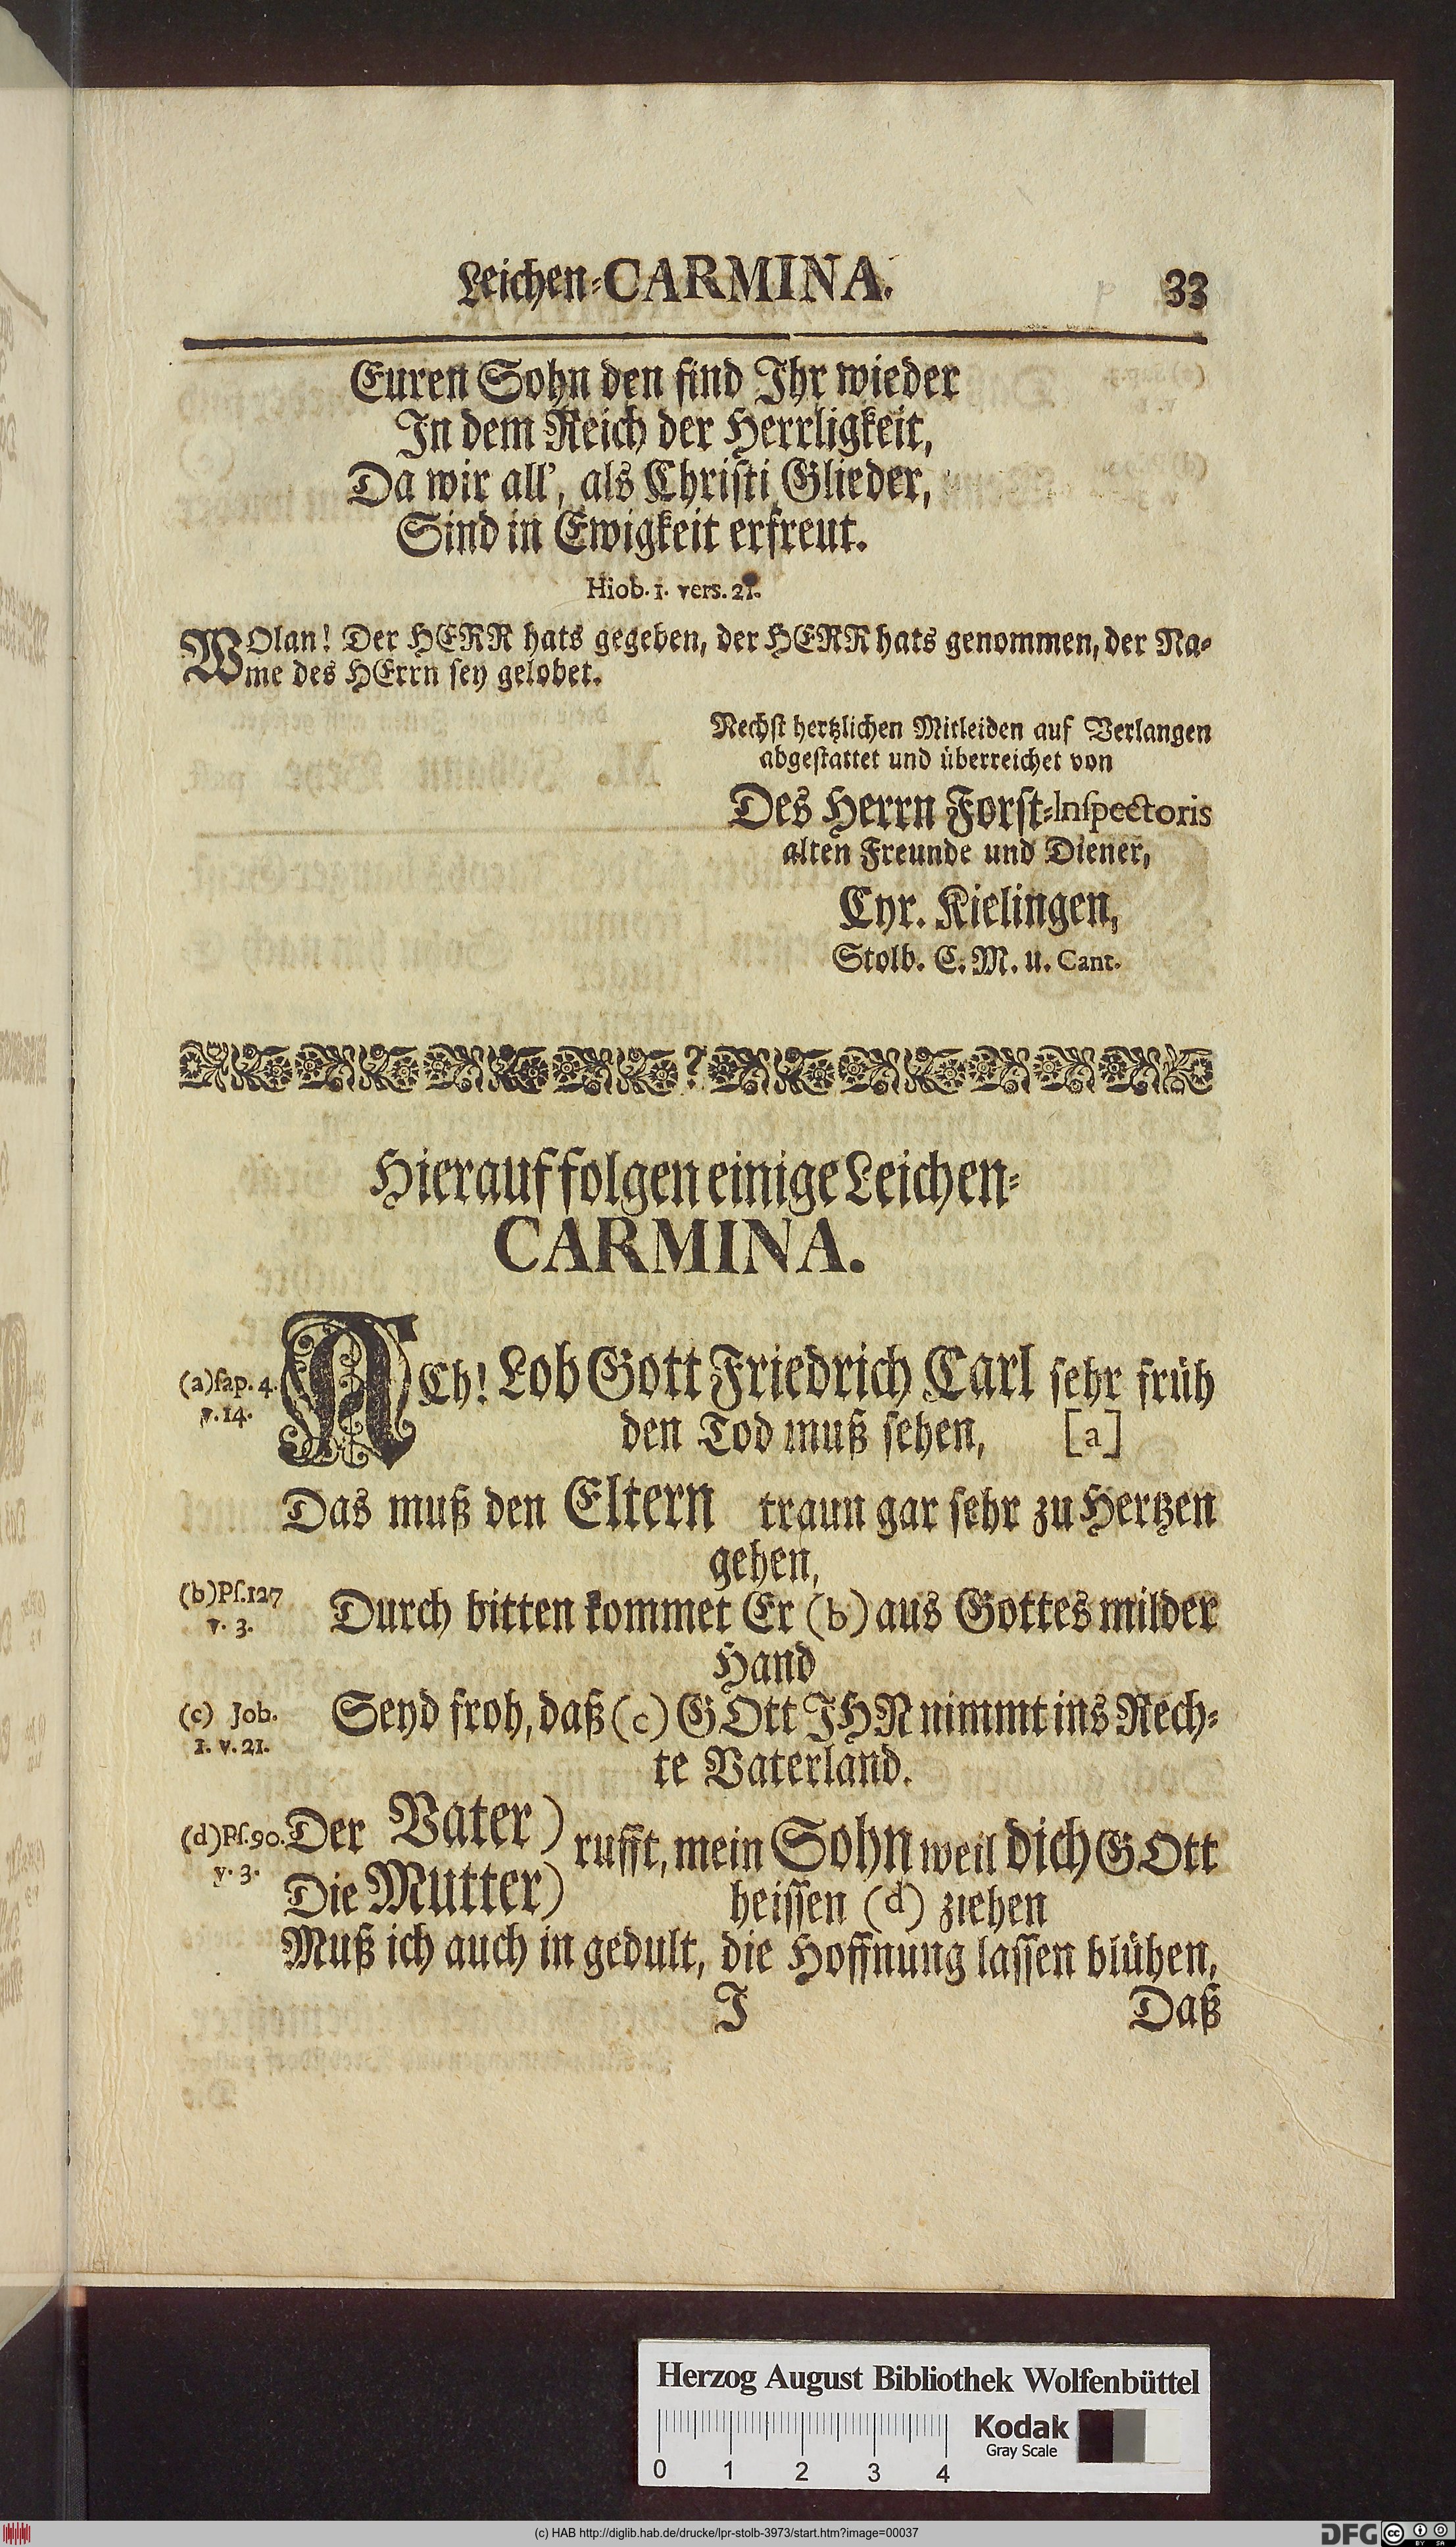 Leichen-CARMINA. 33
Euren Sohn den find Ihr wieder
In dem Reich der Herrligkeit,
Da wir all', als Christi Glieder,
Sind in Ewigkeit erfreut.
Hiob. 1. vers. 21.
WOlan! Der HERR hats gegeben, der HERR hats genommen, der Na-
me des HErrn sey gelobet.
Nechst hertzlichen Mitleiden auf Verlangen
abgestattet und überreichet von
Des Herrn Forst-Inspectoris
alten Freunde und Diener,
Cyr. Kielingen,
Stolb. C. M. u. Cant.
Hierauf folgen einige Leichen-
CARMINA.
(a) sap. 4. v. 14.
ACh! Lob Gott Friedrich Carl sehr früh
den Tod muß sehen, [a]
Das muß den Eltern traun gar sehr zu Hertzen
gehen,
(b) Ps. 127 v. 3.
Durch bitten kommet Er (b) aus Gottes milder
Hand
(c) Job. 1. v. 21.
Seyd froh, daß (c) GOtt IHN nimmt ins Rech-
te Vaterland.
(d) Ps. 90. v. 3.
Der Vater)
Die Mutter)
rufft, mein Sohn weil dich GOtt
heissen (d) ziehen
Muß ich auch in gedult, die Hoffnung lassen blühen,
I Daß
Herzog August Bibliothek Wolfenbüttel
Kodak
Gray Scale
0 1 2 3 4
(c) HAB http://diglib.hab.de/drucke/lpr-stolb-3973/start.htm?image=00037
DFG
cc BY SA